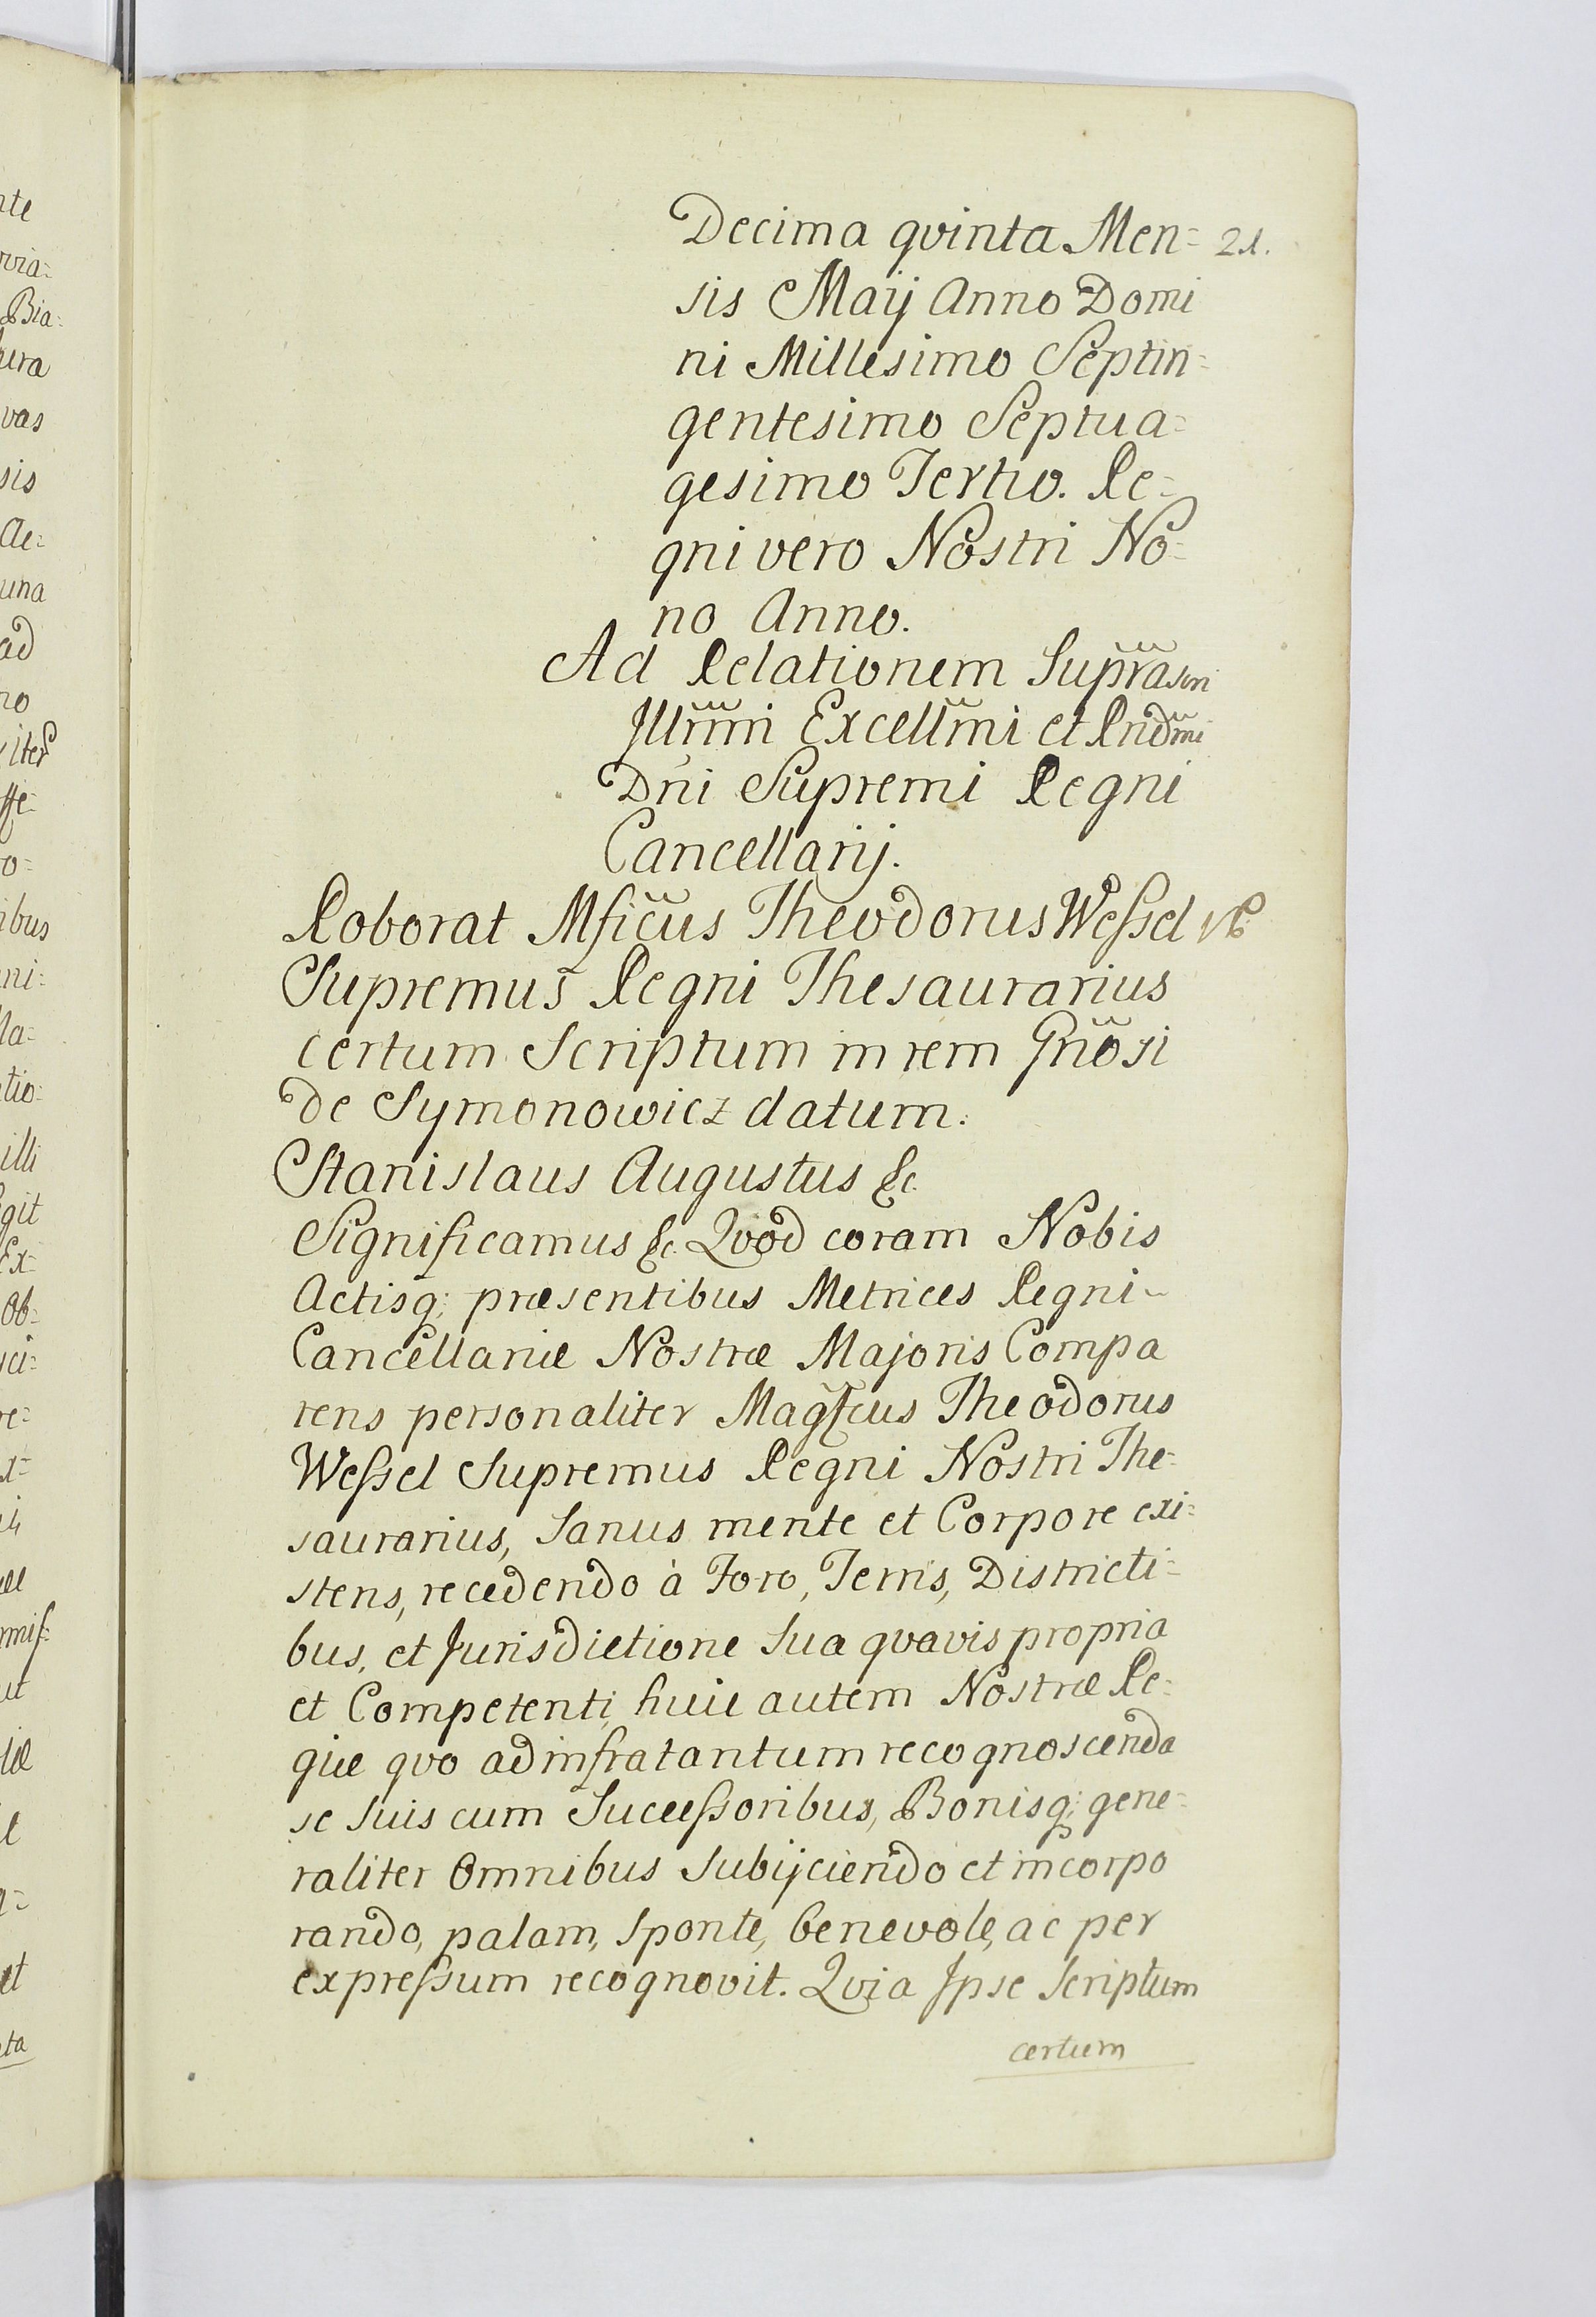 Decima qvinta Men= 21.
sis Maij Anno Domi
ni Millesimo Septin=
gentesimo Septua=
gesimo Tertio. Re=
gni vero Nostri No=
no Anno.
Ad Relationem Suprascri
Jllrmi Excellmi et Rndmi
Dni Supremi Regni
Cancellarij.
Roborat Mficus Theodorus Weſsel
Supremus Regni Thesaurarius
certum Scriptum in rem Gnosi
de Symonowicz datum.
Stanislaus Augustus &c.
Significamus &c. Qvod coram Nobis
Actisq; præsentibus Metrices Regni
Cancellariæ Nostræ Majoris Compa
rens personaliter Magfcus Theodorus
Weſsel Supremus Regni Nostri The=
saurarius, Sanus mente et Corpore exi=
stens, recedendo à Foro, Terris, Districti=
bus, et Jurisdictione Sua qvavis propria
et Competenti, huic autem Nostræ Re=
giæ qvo ad infra tantum recognoscenda
se Suis cum Succeſsoribus, Bonisq; gene=
raliter Omnibus Subijciendo et incorpo
rando, palam, Sponte, benevole, ac per
expreſsum recognovit. Qvia Jpse Scriptum
certum
nte
Bia=
vas
sis
Ae=
una
ad
no
ibus
ni=
la=
tio=
illi
git
Ex=
Ob=
et
ta